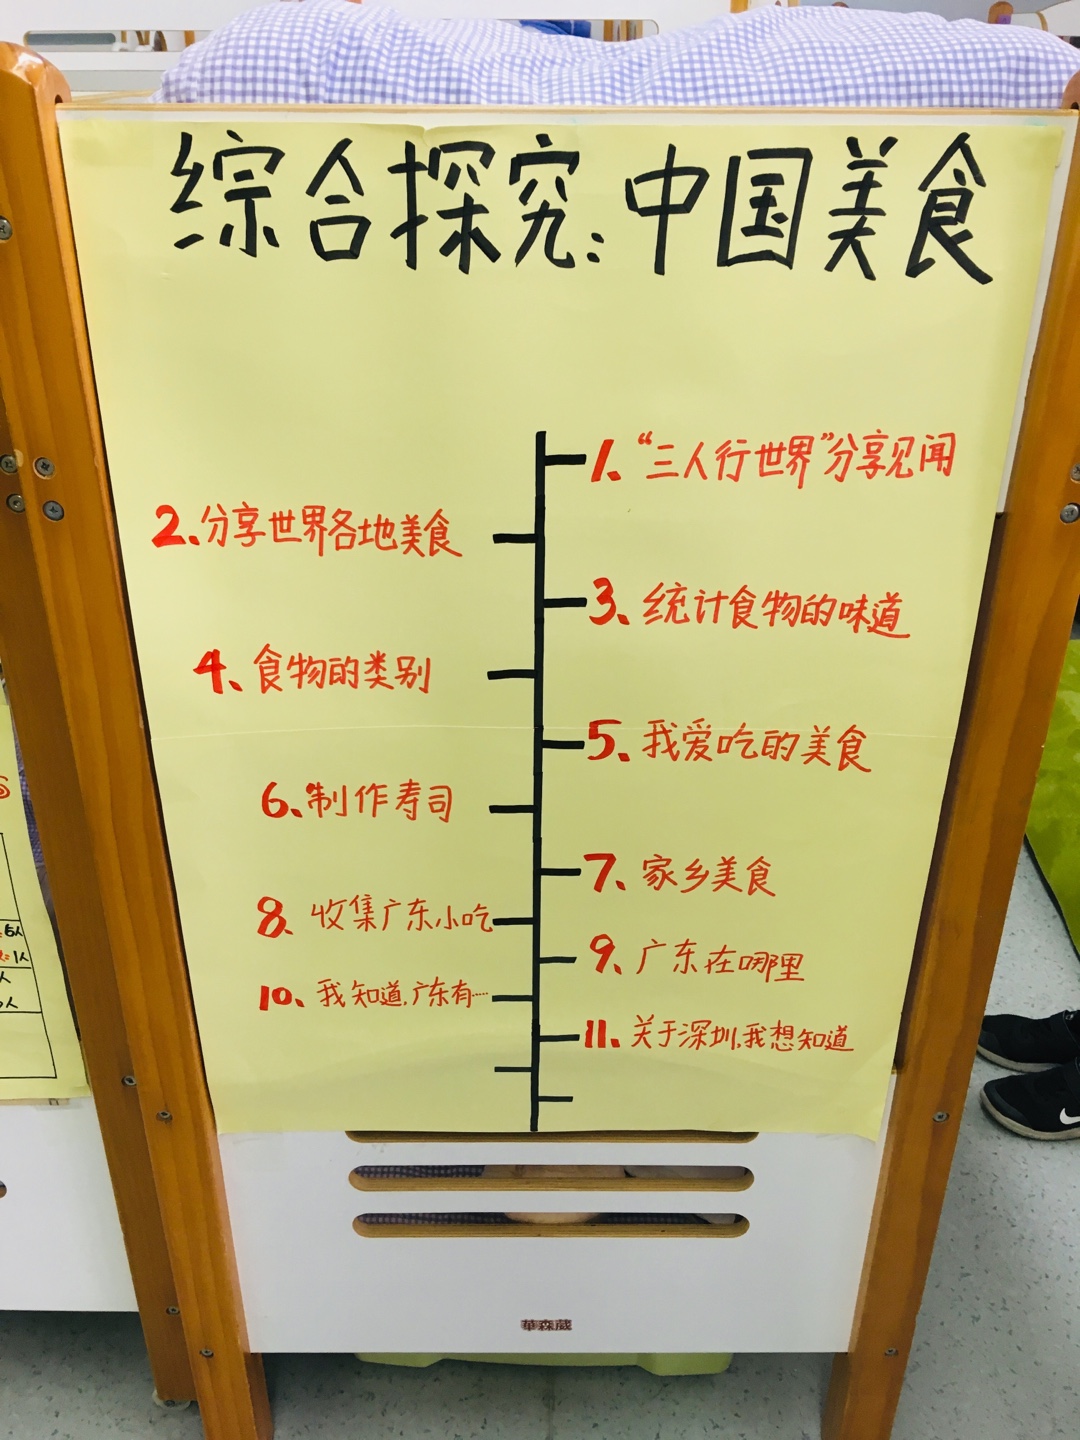 综合探究:中国美食
1、“三人行世界”分享见闻
2、分享世界各地美食
3、统计食物的味道
4、食物的类别
5、我爱吃的美食
6、制作寿司
7、家乡美食
8、收集广东小吃
9、广东在哪里
10、我知道,广东有……
11、关于深圳,我想知道
華森葳